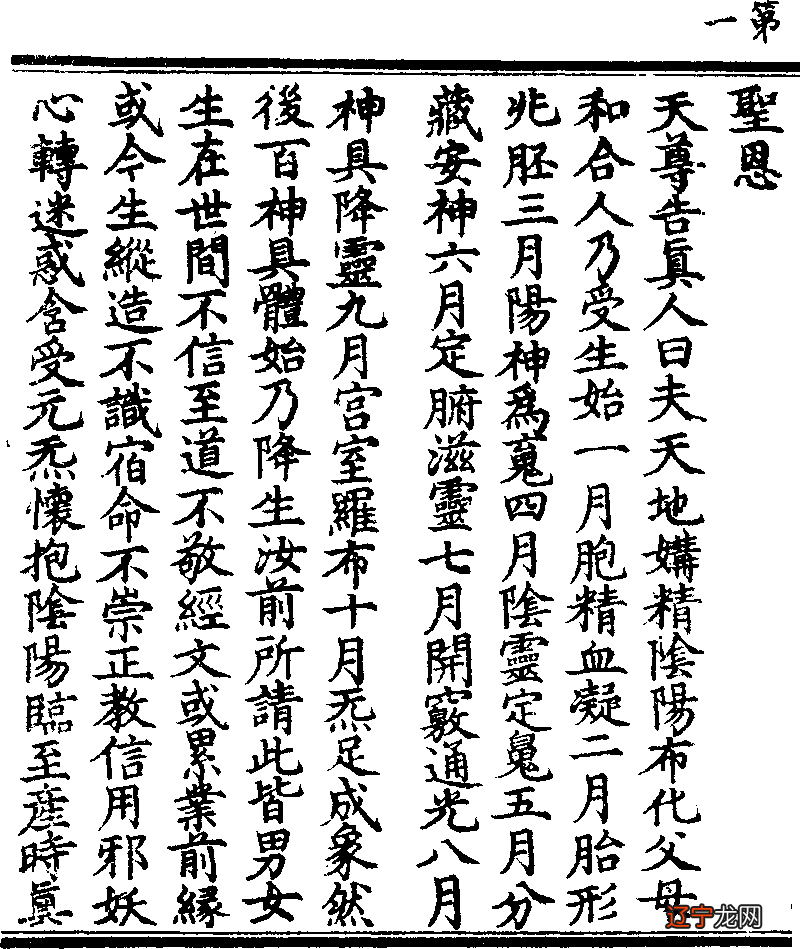 第一
聖恩
天尊告眞人曰夫天地媾精陰陽布化父母
和合人乃受生始一月胞精血凝二月胎形
兆胚三月陽神爲䰟四月陰靈定䰟五月分
藏安神六月定腑滋靈七月開竅通光八月
神具降靈九月宮室羅布十月炁足成象然
後百神具體始乃降生汝前所請此皆男女
生在世間不信至道不敬經文或累業前緣
或今生縱造不識宿命不崇正教信用邪妖
心轉迷惑含受元炁懷抱陰陽臨至產時眞
辽宁龙网